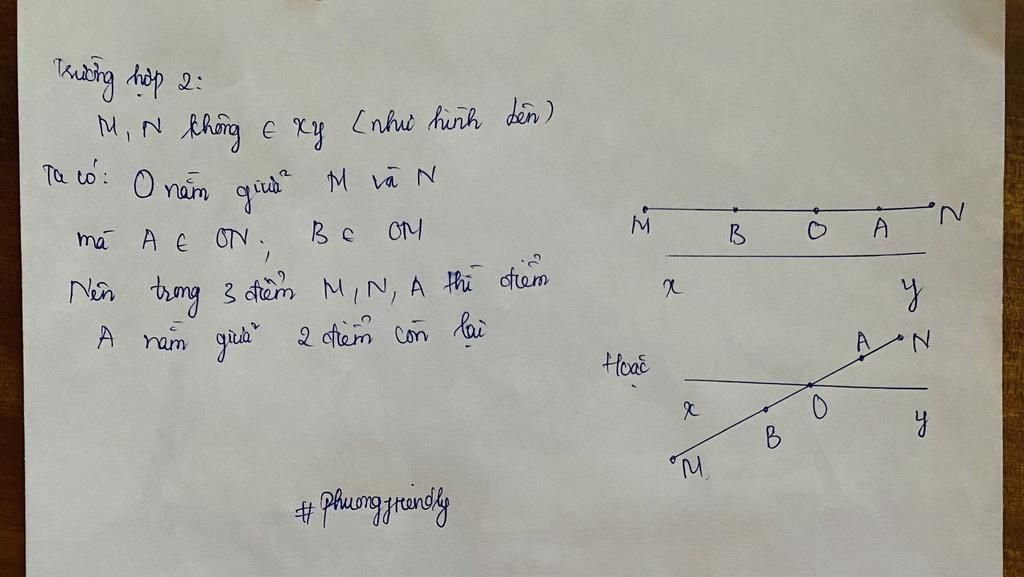 Trường hợp 2:
M, N không ∈ xy (như hình bên)
Ta có: O nằm giữa M và N
mà A ∈ ON; B ∈ OM
Nên trong 3 điểm M, N, A thì điểm
A nằm giữa 2 điểm còn lại
M B O A N
x y
Hoặc
A N
x O y
B
M
#phuongfriendly